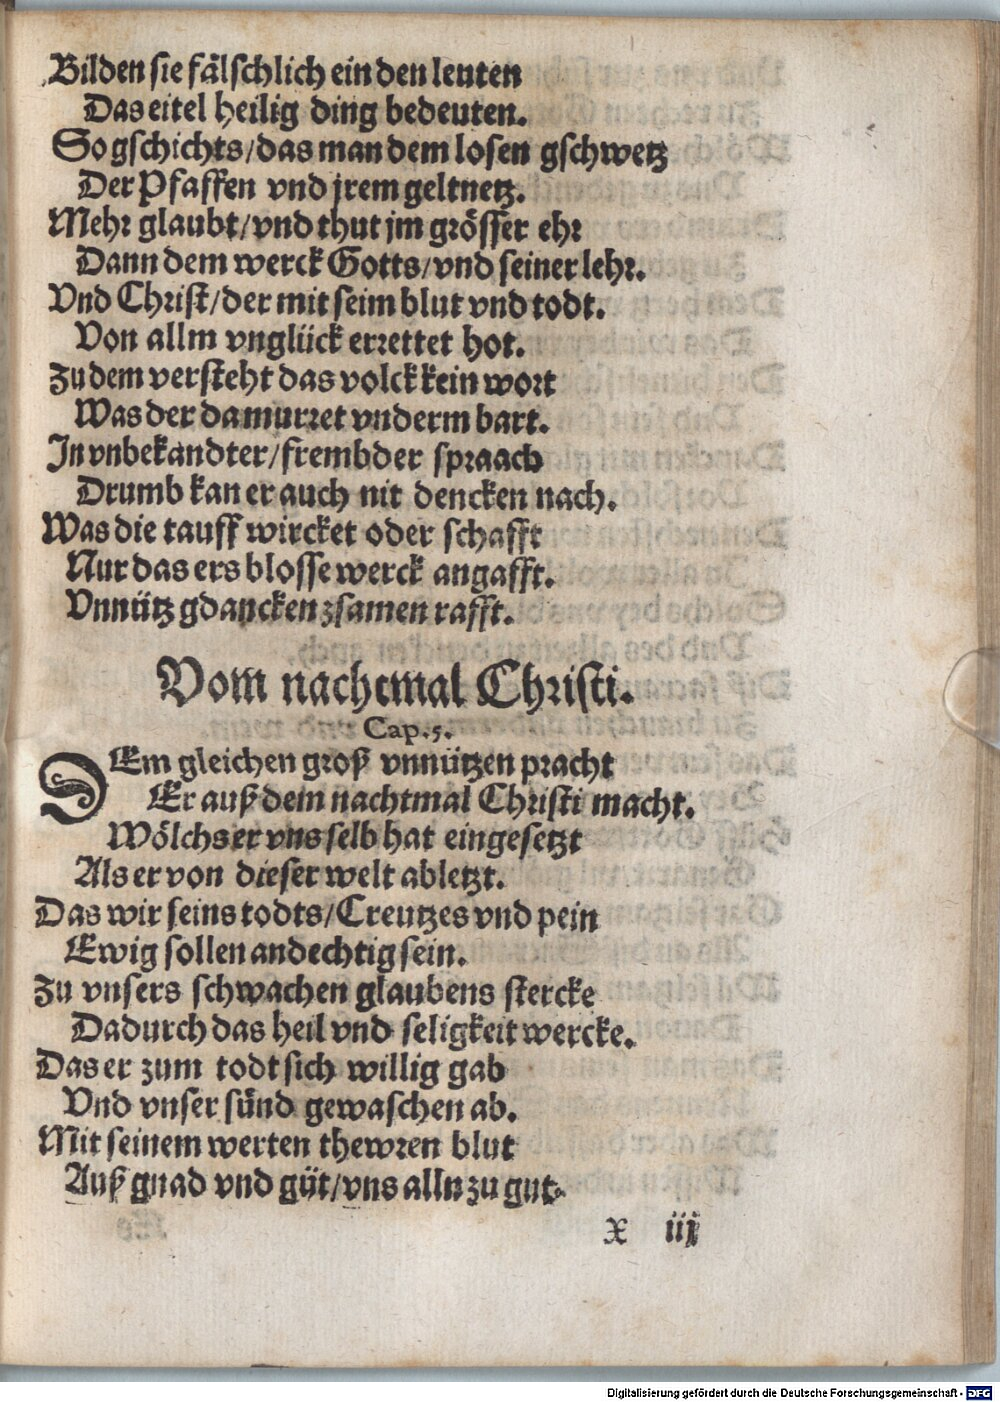 Bilden sie fälschlich ein den leuten
Das eitel heilig ding bedeuten.
So gschichts/das man dem losen gschwetz
Der Pfaffen vnd jrem geltnetz.
Mehr glaubt/vnd thut jm grösser ehr
Dann dem werck Gotts/vnd seiner lehr.
Vnd Christ/der mit seim blut vnd todt.
Von allm vnglück errettet hot.
Zu dem versteht das volck kein wort
Was der da murret vnderm bart.
In vnbekandter/frembder spraach
Drumb kan er auch nit dencken nach.
Was die tauff wircket oder schafft
Nur das ers blosse werck angafft.
Vnnütz gdancken zsamen rafft.
Vom nachtmal Christi.
Cap.5.
DEm gleichen groß vnnützen pracht
Er auß dem nachtmal Christi macht.
Wölchs er vns selb hat eingesetzt
Als er von dieser welt abletzt.
Das wir seins todts/Creutzes vnd pein
Ewig sollen andechtig sein.
Zu vnsers schwachen glaubens stercke
Dadurch das heil vnd seligkeit wercke.
Das er zum todt sich willig gab
Vnd vnser sünd gewaschen ab.
Mit seinem werten thewren blut
Auß gnad vnd güt/vns alln zu gut.
x iij
Digitalisierung gefördert durch die Deutsche Forschungsgemeinschaft - DFG